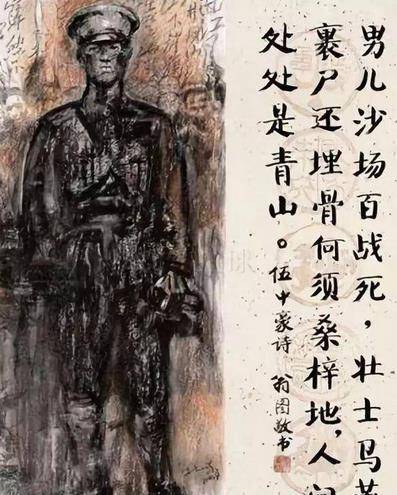 男儿沙场百战死，壮士马革
裹尸还埋骨何须桑梓地，人间
处处是青山。
伍中豪诗 翁图敬书